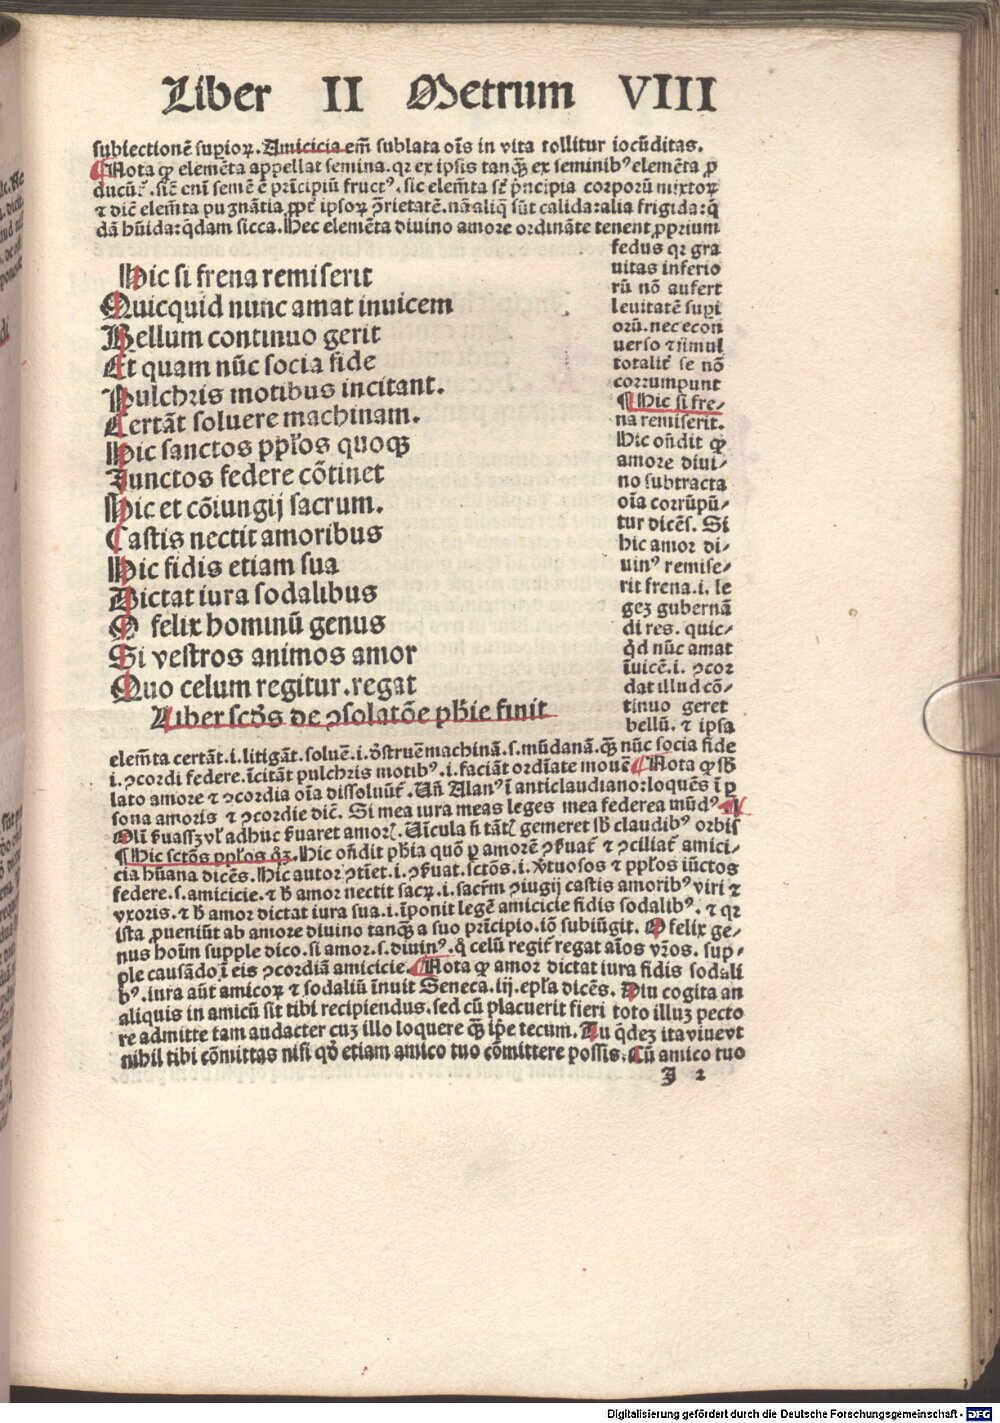 Liber II Metrum VIII
subiectionē supioꝝ. Amicicia em̄ sublata oīs in vita tollitur iocūditas.
¶ Nota ꝙ elemēta appellat semina. qꝛ ex ipsis tanqȝ ex seminibꝰ elemēta ꝓ
ducūt᷑. sic̄ eni semē ē prīcipiū fructꝰ. sic elem̄ta st̄ pncipia corporū mixtoꝝ
⁊ dic̄ elem̄ta pugnātia ꝓpt̄ ipsoꝝ ꝯrietatē. nā aliq̄ sūt calida: alia frigida: q̄
dā hūida: q̄dam sicca. Hec elemēta diuino amore ordināte tenent ꝓprium
fedus qꝛ gra
uitas inferio
rū nō aufert
leuitatē supi
orū. nec econ
uerso ⁊ simul
totalit᷑ se nō
corrumpunt
¶ Hic si fre⸗
na remiserit.
Hic oñdit ꝙ
amore diui⸗
no subtracta
oīa corrūpū⸗
tur dicēs. Si
hic amor di⸗
uinꝰ remise⸗
rit frena .i. le
geȝ gubernā
di res. quic⸗
q̇d nūc amat
īuicē .i. ꝯcor
dat illud cō⸗
tinuo geret
bellū. ⁊ ipsa
Hic si frena remiserit
Quicquid nunc amat inuicem
Bellum continuo gerit
Et quam nūc socia fide
Pulchris motibus incitant.
Certāt soluere machinam.
Hic sanctos pp̄los quoqȝ
Junctos federe cōtinet
Hic et cōiungij sacrum.
Castis nectit amoribus
Hic fidis etiam sua
Dictat iura sodalibus
O felix hominū genus
Si vestros animos amor
Quo celum regitur. regat
Liber scd̄s de ꝯsolatōe ph̄ie finit
elem̄ta certāt .i. litigāt. soluē .i. d̄struē machinā .s. mūdanā. qȝ nūc socia fide
.i. ꝯcordi federe. īcitāt pulchris motibꝰ .i. faciāt ordīate mouē ¶ Nota ꝙ sb̄
lato amore ⁊ ꝯcordia oīa dissoluūt᷑. Uñ Alanꝰ ī anticlaudiano: loquēs ī ꝑ
sona amoris ⁊ ꝯcordie dic̄. Si mea iura meas leges mea federea mūdꝰ
¶ Hic sctōs pp̄los q̄ȝ. Hic oñdit ph̄ia quō ꝑ amorē ꝯẜuat᷑ ⁊ ꝯciliat᷑ amici⸗
cia hūana dicēs. Hic autor ꝯtīet .i. ꝯẜuat. sctōs .i. v̓tuosos ⁊ pp̄los iūctos
federe .s. amicicie. ⁊ h̄ amor nectit sacꝝ .i. sacr̄m ꝯiugij castis amoribꝰ viri ⁊
vxoris. ⁊ h̄ amor dictat iura sua .i. īponit legē amicicie fidis sodalibꝰ. ⁊ qꝛ
ista ꝓueniūt ab amore diuino tanqȝ a suo prīcipio. iō subiūgit. O felix ge⸗
nus hoīm supple dico. si amor .s. diuinꝰ. q̊ celū regit᷑ regat aīos vr̄os. sup⸗
ple causādo ī eis ꝯcordiā amicicie. ¶ Nota ꝙ amor dictat iura fidis sodali
bꝰ. iura aūt amicoꝝ ⁊ sodaliū īnuit Seneca .iij. epl̄a dicēs. Diu cogita an
aliquis in amicū sit tibi recipiendus. sed cū placuerit fieri toto illuȝ pecto
re admitte tam audacter cuȝ illo loquere qȝ ip̄e tecum. Tu q̇deȝ ita viuevt
nihil tibi cōmittas nisi qd̓ etiam amico tuo cōmittere possis. Cū amico tuo
J 2
Digitalisierung gefördert durch die Deutsche Forschungsgemeinschaft - DFG